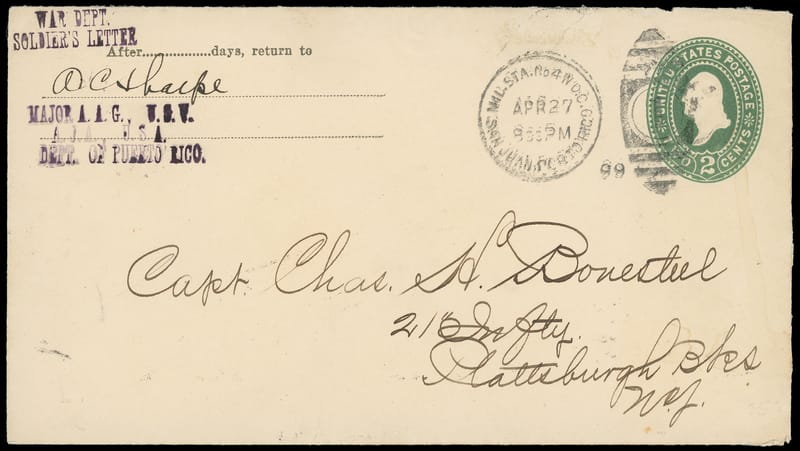 WAR DEPT.
SOLDIER'S LETTER
After..................days, return to
A C Sharpe
MAJOR A. A. G., U. S. V.
A. J. A., U. S. A.
DEPT. OF PUERTO RICO.
MIL. STA. No 4 W D.C.
APR 27
PM
SAN JUAN, PORTO RICO
99
UNITED STATES POSTAGE
2 CENTS
Capt. Chas. H. Bonesteel
21st Infty.
Plattsburgh Bks
N.Y.